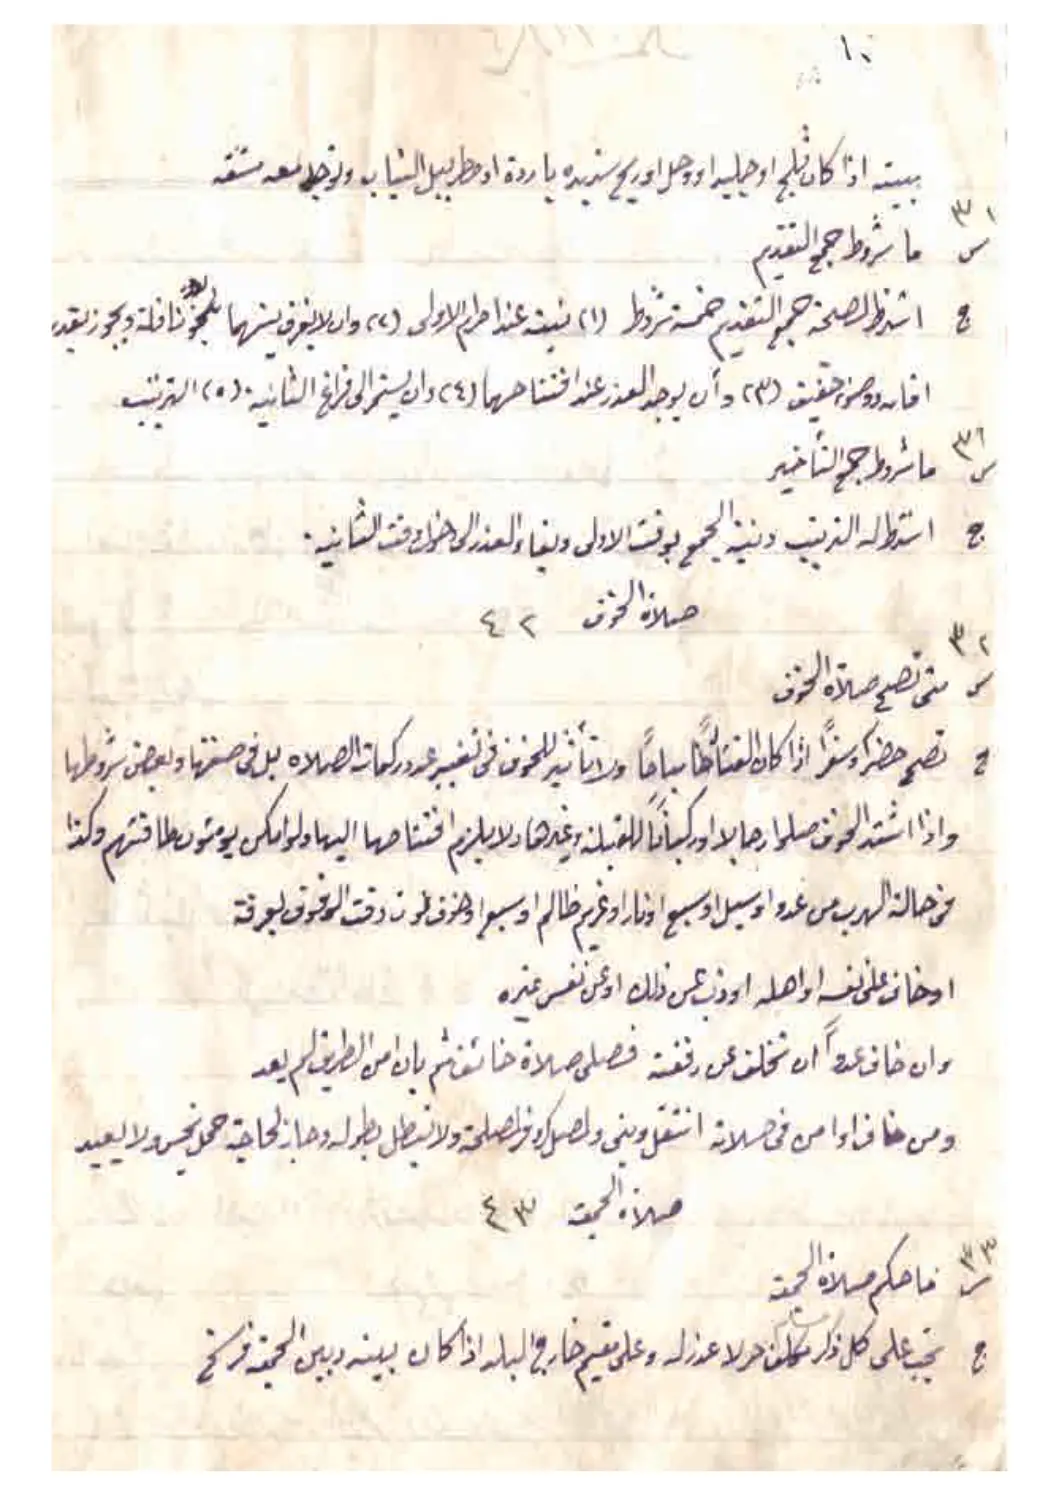 ١٠
ببيته اذا كان ثلج او جليد او وحل او ريح شديده باردة او مطر يبل الثياب ويوجد معه مشقه
٣١
س ما شروط جمع التقديم
ج اشترط لصحة جمع التقديم خمسة شروط (١) نيته عند احرام الاولى (٢) وان لا يفرق بينهما بنحو نافلة ويجوز بقدر
اقامه ووضوء خفيف (٣) وأن يوجد العذر عند افتتاحهما (٤) وان يستمر الى فراغ الثانيه (٥) الترتيب
٣١
س ما شروط جمع التأخير
ج اشترط له الترتيب ونية الجمع بوقت الاولى وبقاء العذر الى دخول وقت الثانيه .
صلاة الخوف ٤٢
٣٢
س متى تصح صلاة الخوف
ج تصح حضرا وسفراً اذا كان القتال مباحاً ولا تأثير للخوف في تغيير عدد ركعات الصلاه بل في صفتها وبعض شروطها
واذا اشتد الخوف صلوا رجالا او ركباناً للقبلة وغيرها ولا يلزم افتتاحها اليها ولو امكن يومئون طاقتهم وكذا
في حالة الهرب من عدو او سيل او سبع او نار او غريم ظالم او خوف فوت وقت الوقوف بعرفة
او خاف على نفسه او اهله او ذب عن ذلك او عن نفس غيره
وان خاف عدواً ان تخلف عن رفقته فصلى صلاة خائف ثم بان امن الطريق لم يعد
ومن خاف او امن في صلاته انتقل وبنى ولمصل كر وفر لمصلحة ولا تبطل بطوله وجاز لحاجة حمل نجس ولا يعيد
صلاة الجمعة ٤٣
٣٣
س ما حكم صلاة الجمعة
ج تجب على كل ذكر مكلف حر لا عذر له وعلى مقيم خارج البلد اذا كان بينه وبين الجمعة فرسخ